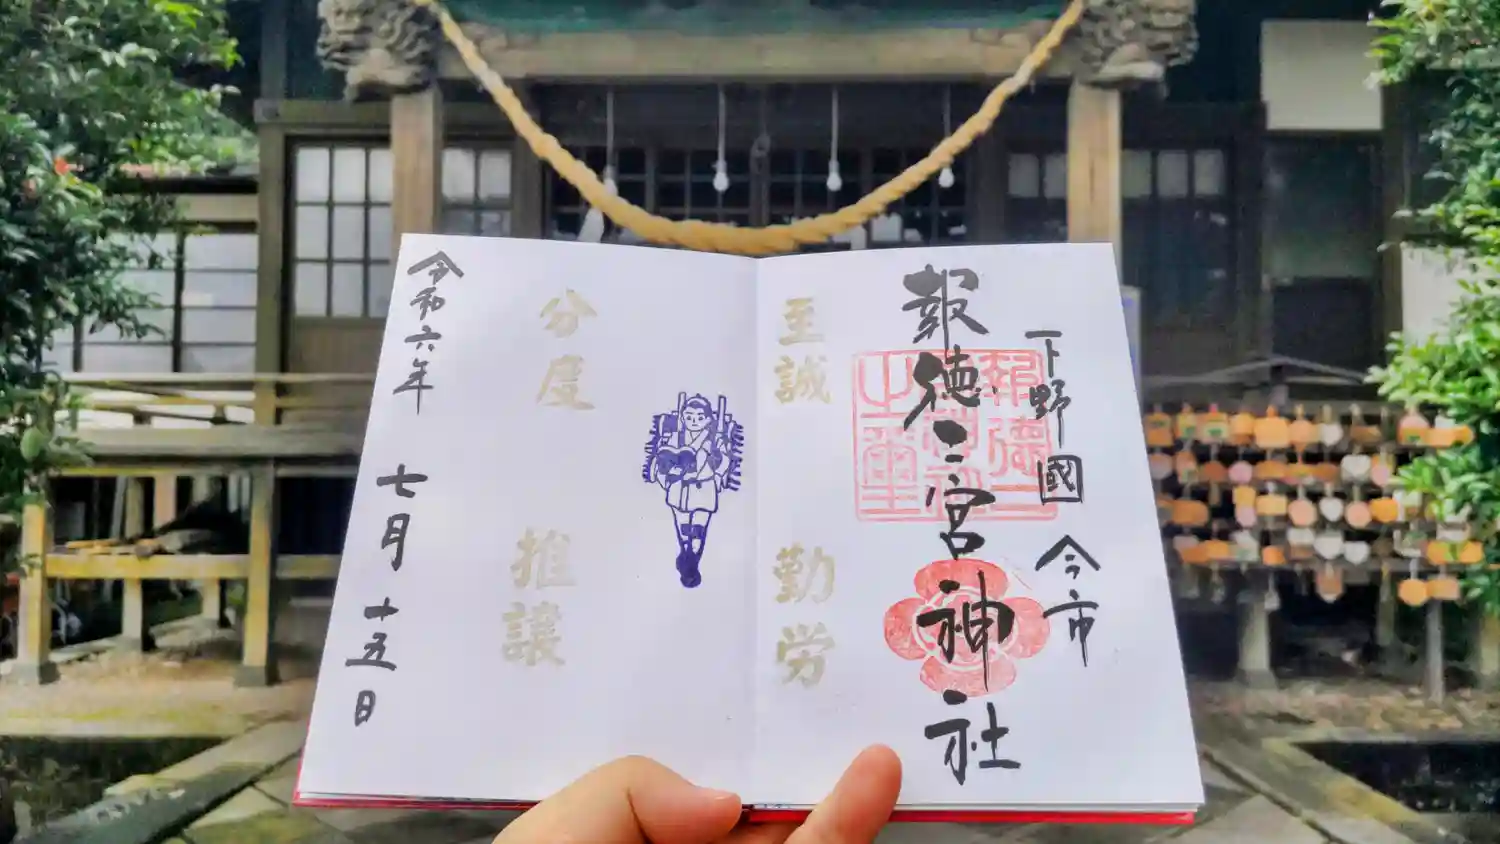 下野國 今市
報徳二宮神社
報徳二
宮神社
之璽
至誠
勤労
分度
推譲
令和六年 七月 十五日